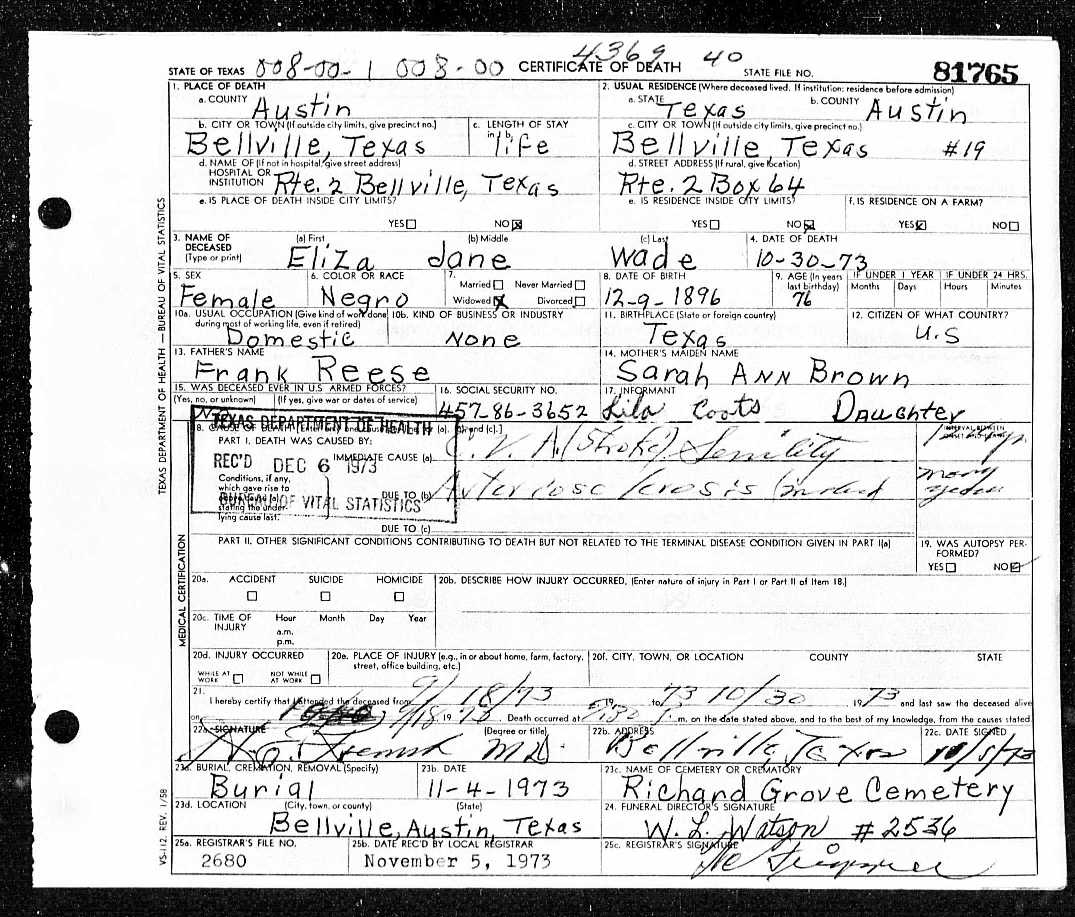 4369 40
STATE OF TEXAS 008-00-1 008-00 CERTIFICATE OF DEATH STATE FILE NO. 81765
1. PLACE OF DEATH
a. COUNTY Austin
2. USUAL RESIDENCE (Where deceased lived. If institution: residence before admission)
a. STATE Texas b. COUNTY Austin
b. CITY OR TOWN (If outside city limits, give precinct no.) Bellville, Texas
c. LENGTH OF STAY in 1b. life
c. CITY OR TOWN (If outside city limits, give precinct no.) Bellville, Texas #19
d. NAME OF (If not in hospital, give street address) HOSPITAL OR INSTITUTION Rte. 2 Bellville, Texas
d. STREET ADDRESS (If rural, give location) Rte. 2 Box 64
e. IS PLACE OF DEATH INSIDE CITY LIMITS?
YES NO
e. IS RESIDENCE INSIDE CITY LIMITS?
YES NO
f. IS RESIDENCE ON A FARM?
YES NO
3. NAME OF DECEASED (Type or print)
(a) First Eliza (b) Middle Jane (c) Last Wade
4. DATE OF DEATH 10-30-73
5. SEX Female
6. COLOR OR RACE Negro
7. Married Never Married
Widowed Divorced
8. DATE OF BIRTH 12-9-1896
9. AGE (In years last birthday) 76
IF UNDER 1 YEAR Months Days
IF UNDER 24 HRS. Hours Minutes
10a. USUAL OCCUPATION (Give kind of work done during most of working life, even if retired) Domestic
10b. KIND OF BUSINESS OR INDUSTRY None
11. BIRTHPLACE (State or foreign country) Texas
12. CITIZEN OF WHAT COUNTRY? U.S
13. FATHER'S NAME Frank Reese
14. MOTHER'S MAIDEN NAME Sarah Ann Brown
15. WAS DECEASED EVER IN U.S ARMED FORCES?
(Yes, no, or unknown) (If yes, give war or dates of service)
No
16. SOCIAL SECURITY NO. 457-86-3652
17. INFORMANT Lila Coots Daughter
TEXAS DEPARTMENT OF HEALTH
REC'D DEC 6 1973
BUREAU OF VITAL STATISTICS
PART I. DEATH WAS CAUSED BY:
IMMEDIATE CAUSE (a) C. V. A. (Stroke) Senility
INTERVAL BETWEEN ONSET AND DEATH
Conditions, if any, which gave rise to
stating the under-lying cause last.
DUE TO (b) Arteriosclerosis
many years
DUE TO (c)
PART II. OTHER SIGNIFICANT CONDITIONS CONTRIBUTING TO DEATH BUT NOT RELATED TO THE TERMINAL DISEASE CONDITION GIVEN IN PART I(a)
19. WAS AUTOPSY PERFORMED?
YES NO
20a. ACCIDENT SUICIDE HOMICIDE
20b. DESCRIBE HOW INJURY OCCURRED. (Enter nature of injury in Part I or Part II of Item 18.)
20c. TIME OF INJURY Hour Month Day Year
a.m.
p.m.
20d. INJURY OCCURRED
WHILE AT WORK NOT WHILE AT WORK
20e. PLACE OF INJURY (e.g., in or about home, farm, factory, street, office building, etc.)
20f. CITY, TOWN, OR LOCATION COUNTY STATE
21. I hereby certify that I attended the deceased from 9/18/73 19 to 73 10/30 19 73 and last saw the deceased alive
on 9/18 19 73. Death occurred at m. on the date stated above, and to the best of my knowledge, from the causes stated.
22a. SIGNATURE (Degree or title) MD.
22b. ADDRESS Bellville, Texas
22c. DATE SIGNED
23a. BURIAL, CREMATION, REMOVAL (Specify) Burial
23b. DATE 11-4-1973
23c. NAME OF CEMETERY OR CREMATORY Richard Grove Cemetery
23d. LOCATION (City, town, or county) (State) Bellville, Austin, Texas
24. FUNERAL DIRECTOR'S SIGNATURE W. L. Watson #2536
25a. REGISTRAR'S FILE NO. 2680
25b. DATE REC'D BY LOCAL REGISTRAR November 5, 1973
25c. REGISTRAR'S SIGNATURE
TEXAS DEPARTMENT OF HEALTH — BUREAU OF VITAL STATISTICS
MEDICAL CERTIFICATION
VS-112, REV. 1/58